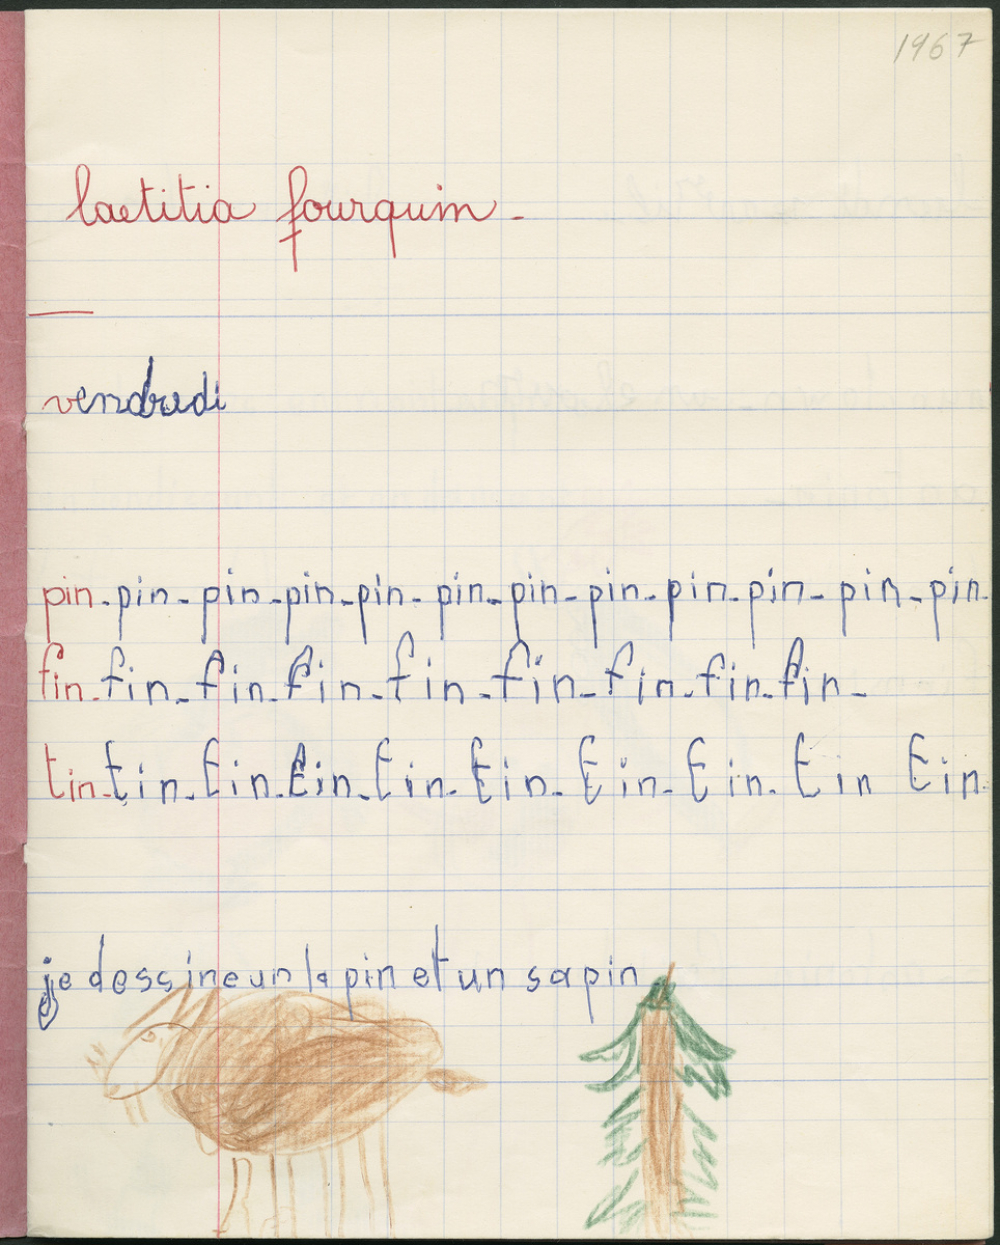 1967
laetitia fourquin -
vendredi
pin - pin - pin - pin - pin - pin - pin - pin - pin - pin - pin - pin -
fin - fin - fin - fin - fin - fin - fin - fin - fin -
tin - tin - tin - tin - tin - tin - tin - tin - tin tin -
je dessine un lapin et un sapin